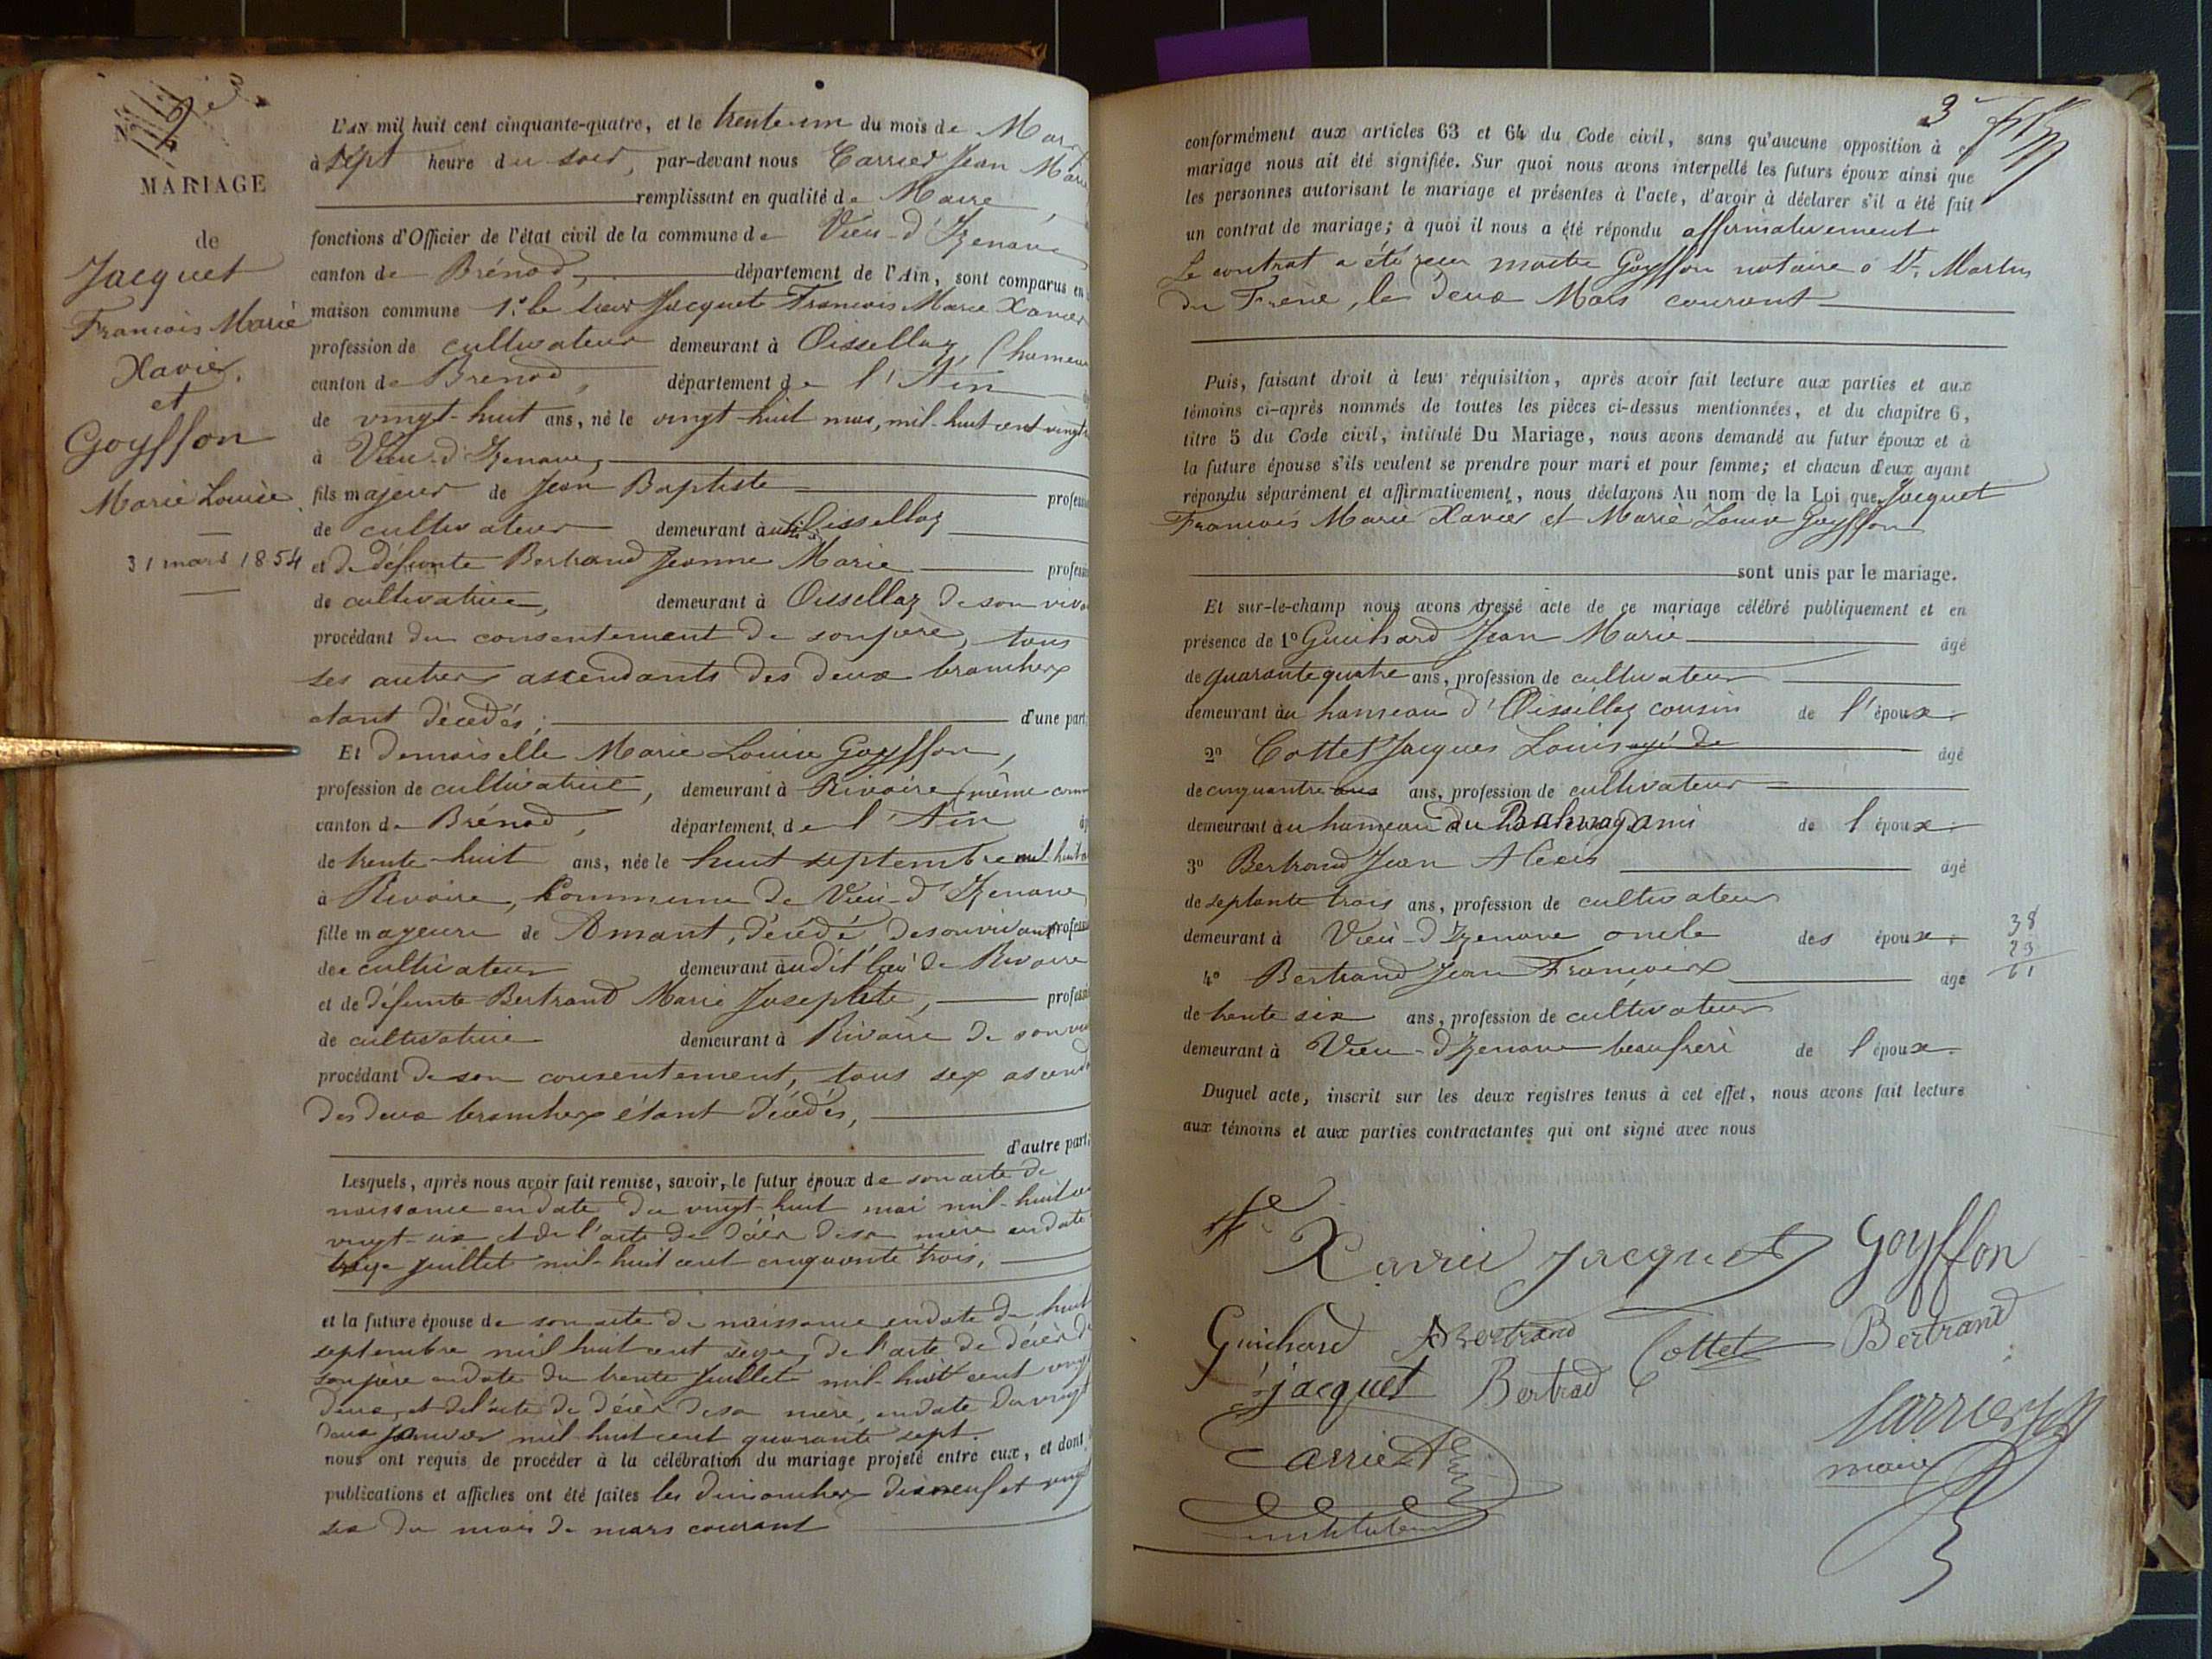 N° 3
MARIAGE
de
Jacquet
François Marie
Xavier
et
Goyffon
Marie Louise
31 mars 1854
L'AN mil huit cent cinquante-quatre, et le trente-un du mois de Mars
à sept heure du soir, par-devant nous Carrier Jean Marie
remplissant en qualité de Maire,
fonctions d'Officier de l'état civil de la commune de Vieu-d'Izenave
canton de Brénod, département de l'Ain, sont comparus en
maison commune 1° le sieur Jacquet François Marie Xavier
profession de cultivateur demeurant à Oissellaz, (hameau
canton de Brénod, département de l'Ain
de vingt-huit ans, né le vingt-huit mai, mil-huit cent vingt
à Vieu-d'Izenave,
fils majeur de Jean Baptiste profession
de cultivateur demeurant audit Oissellaz
et de défunte Bertrand Jeanne Marie profession
de cultivatrice, demeurant à Oissellaz de son vivant
procédant du consentement de son père, tous
ses autres ascendants des deux branches
étant décédés; d'une part;
Et demoiselle Marie Louise Goyffon,
profession de cultivatrice, demeurant à Rivoire (même com
canton de Brénod, département de l'Ain
de trente-huit ans, née le huit septembre mil-huit
à Rivoire, Commune de Vieu-d'Izenave
fille majeure de Amant, décédé de son vivant profession
de cultivateur demeurant audit lieu de Rivoire
et de défunte Bertrand Marie Josephte, profession
de cultivatrice demeurant à Rivoire de son viv
procédant de son consentement, tous ses ascend
des deux branches étant décédés,
d'autre part;
Lesquels, après nous avoir fait remise, savoir, le futur époux de son acte de
naissance en date du vingt-huit mai mil-huit ce
vingt-six et de l'acte de décès de sa mère en date
treize juillet mil-huit cent cinquante trois,
et la future épouse de son acte de naissance en date du huit
septembre mil huit cent seize, de l'acte de décès de
son père en date du trente juillet mil-huit cent vingt
deux, et de l'acte de décès de sa mère, en date du vingt
deux janvier mil-huit cent quarante sept.
nous ont requis de procéder à la célébration du mariage projeté entre eux, et dont
publications et affiches ont été faites les dimanches dix neuf et vingt
six du mois de mars courant
3
conformément aux articles 63 et 64 du Code civil, sans qu'aucune opposition à ce
mariage nous ait été signifiée. Sur quoi nous avons interpellé les futurs époux ainsi que
les personnes autorisant le mariage et présentes à l'acte, d'avoir à déclarer s'il a été fait
un contrat de mariage; à quoi il nous a été répondu affirmativement
Le contrat a été reçu maître Goyffon notaire à St. Martin
du Frêne, le deux Mars courant
Puis, faisant droit à leur réquisition, après avoir fait lecture aux parties et aux
témoins ci-après nommés de toutes les pièces ci-dessus mentionnées, et du chapitre 6,
titre 5 du Code civil, intitulé Du Mariage, nous avons demandé au futur époux et à
la future épouse s'ils veulent se prendre pour mari et pour femme; et chacun d'eux ayant
répondu séparément et affirmativement, nous déclarons Au nom de la Loi que Jacquet
François Marie Xavier et Marie Louise Goyffon
sont unis par le mariage.
Et sur-le-champ nous avons dressé acte de ce mariage célébré publiquement et en
présence de 1° Guichard Jean Marie âgé
de quarante quatre ans, profession de cultivateur
demeurant au hameau d'Oissellaz cousin de l'époux.
2° Cottet Jacques Louis agé de âgé
de cinquante ans ans, profession de cultivateur
demeurant au hameau du ami de l'époux.
3° Bertrand Jean Alexis âgé
de septante trois ans, profession de cultivateur
demeurant à Vieu-d'Izenave oncle des époux.
4° Bertrand Jean François âgé
de trente six ans, profession de cultivateur
demeurant à Vieu-d'Izenave beaufrère de l'époux.
38
23
61
Duquel acte, inscrit sur les deux registres tenus à cet effet, nous avons fait lecture
aux témoins et aux parties contractantes qui ont signé avec nous
Xavier Jacquet Goyffon
Guichard Bertrand Cottet Bertrand
Jacquet Bertrad
Carrier Carrier
instituteur maire